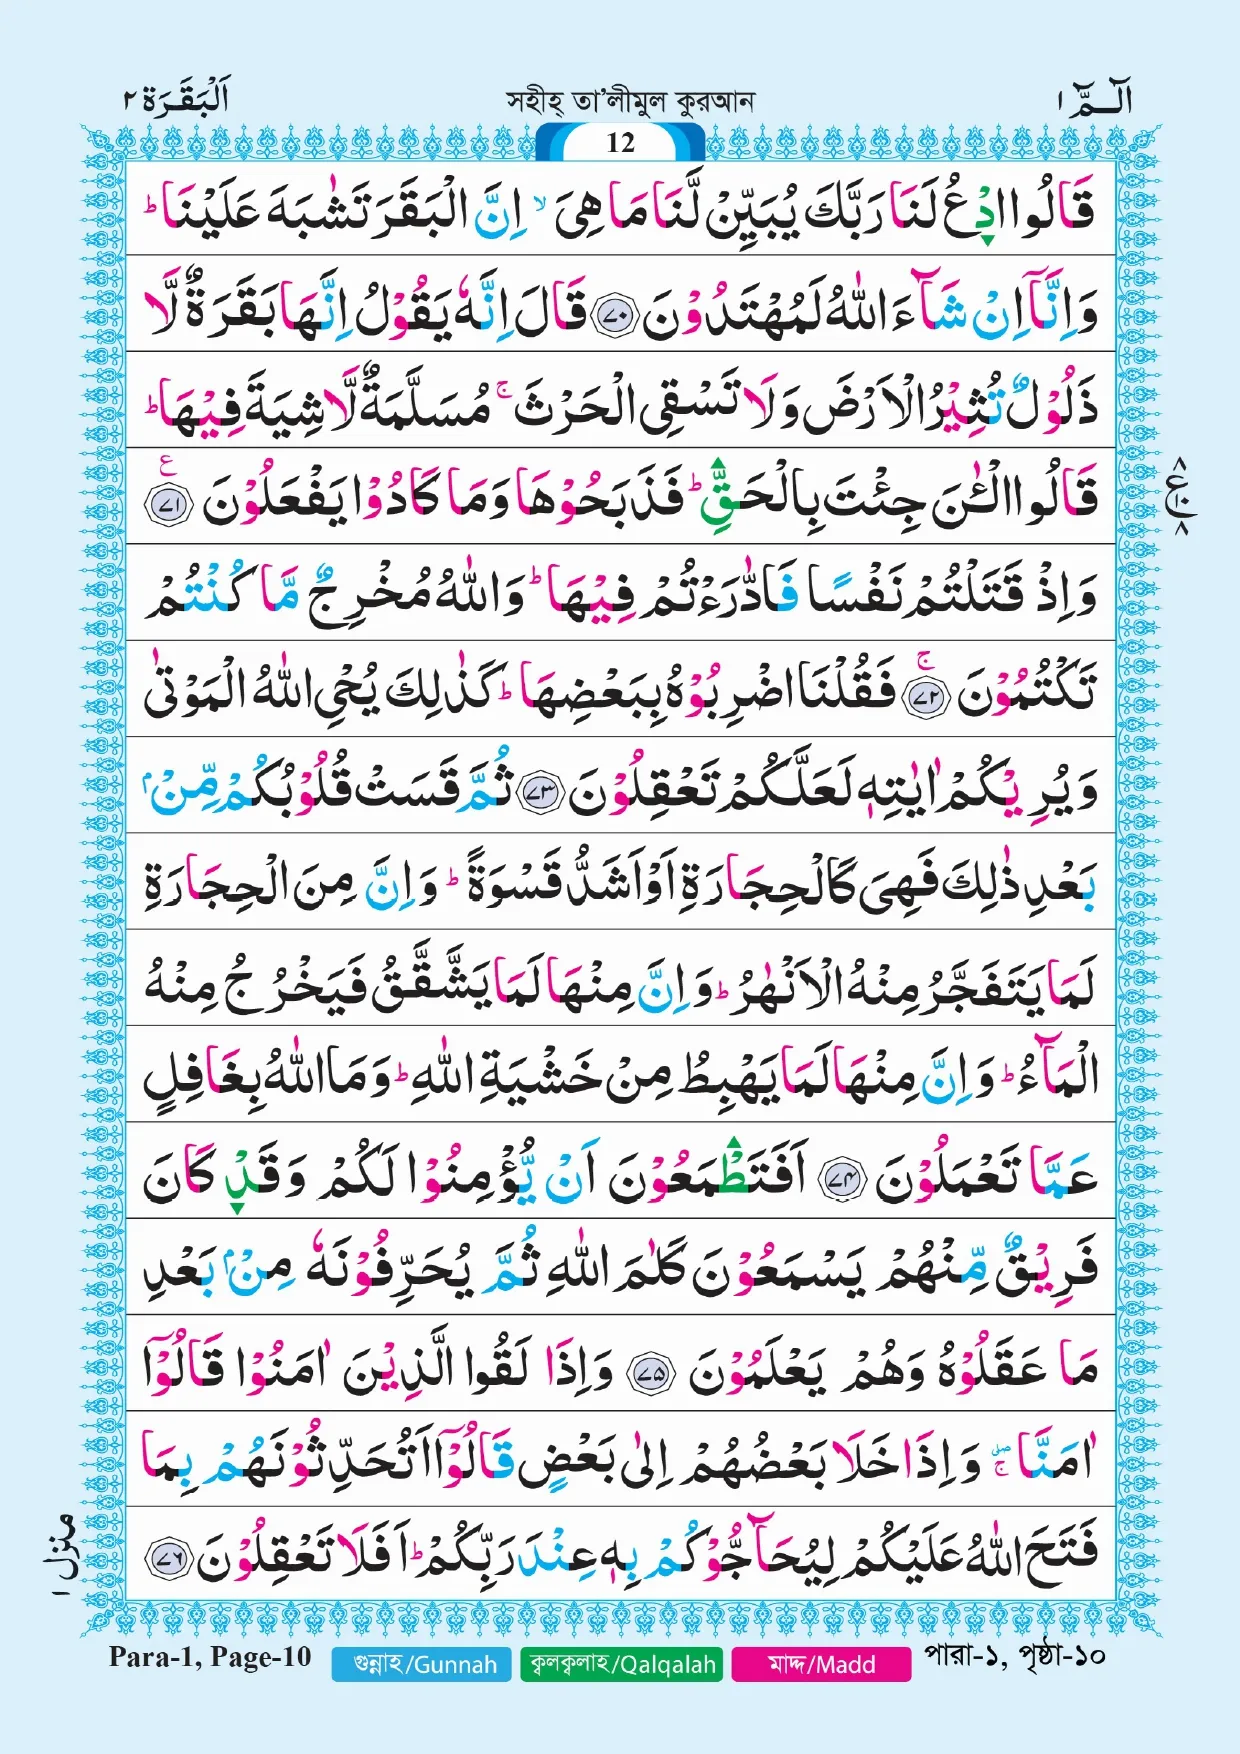 اَلْبَقَرَة ٢
সহীহ্ তা'লীমুল কুরআন
الٓـمّٓ ١
12
قَالُوا ادْعُ لَنَا رَبَّكَ يُبَيِّنْ لَّنَا مَا هِيَ ۙ اِنَّ الْبَقَرَ تَشٰبَهَ عَلَيْنَا ؕ
وَاِنَّاۤ اِنْ شَآءَ اللّٰهُ لَمُهْتَدُوْنَ ﴿۷۰﴾ قَالَ اِنَّهٗ يَقُوْلُ اِنَّهَا بَقَرَةٌ لَّا
ذَلُوْلٌ تُثِيْرُ الْاَرْضَ وَلَا تَسْقِى الْحَرْثَ ۚ مُسَلَّمَةٌ لَّا شِيَةَ فِيْهَا ؕ
قَالُوا الْـٰٔنَ جِئْتَ بِالْحَقِّ ؕ فَذَبَحُوْهَا وَمَا كَادُوْا يَفْعَلُوْنَ ﴿۷۱﴾ ع
وَاِذْ قَتَلْتُمْ نَفْسًا فَادّٰرَءْتُمْ فِيْهَا ؕ وَاللّٰهُ مُخْرِجٌ مَّا كُنْتُمْ
تَكْتُمُوْنَ ﴿۷۲﴾ ۚ فَقُلْنَا اضْرِبُوْهُ بِبَعْضِهَا ؕ كَذٰلِكَ يُحْيِ اللّٰهُ الْمَوْتٰى
وَيُرِيْكُمْ اٰيٰتِهٖ لَعَلَّكُمْ تَعْقِلُوْنَ ﴿۷۳﴾ ثُمَّ قَسَتْ قُلُوْبُكُمْ مِّنْۢ
بَعْدِ ذٰلِكَ فَهِيَ كَالْحِجَارَةِ اَوْ اَشَدُّ قَسْوَةً ؕ وَاِنَّ مِنَ الْحِجَارَةِ
لَمَا يَتَفَجَّرُ مِنْهُ الْاَنْهٰرُ ؕ وَاِنَّ مِنْهَا لَمَا يَشَّقَّقُ فَيَخْرُجُ مِنْهُ
الْمَآءُ ؕ وَاِنَّ مِنْهَا لَمَا يَهْبِطُ مِنْ خَشْيَةِ اللّٰهِ ؕ وَمَا اللّٰهُ بِغَافِلٍ
عَمَّا تَعْمَلُوْنَ ﴿۷۴﴾ اَفَتَطْمَعُوْنَ اَنْ يُّؤْمِنُوْا لَكُمْ وَقَدْ كَانَ
فَرِيْقٌ مِّنْهُمْ يَسْمَعُوْنَ كَلٰمَ اللّٰهِ ثُمَّ يُحَرِّفُوْنَهٗ مِنْۢ بَعْدِ
مَا عَقَلُوْهُ وَهُمْ يَعْلَمُوْنَ ﴿۷۵﴾ وَاِذَا لَقُوا الَّذِيْنَ اٰمَنُوْا قَالُوْۤا
اٰمَنَّا ۖۚ وَاِذَا خَلَا بَعْضُهُمْ اِلٰى بَعْضٍ قَالُوْۤا اَتُحَدِّثُوْنَهُمْ بِمَا
فَتَحَ اللّٰهُ عَلَيْكُمْ لِيُحَآجُّوْكُمْ بِهٖ عِنْدَ رَبِّكُمْ ؕ اَفَلَا تَعْقِلُوْنَ ﴿۷۶﴾
۸
ع
۱۰
۸
منزل ١
Para-1, Page-10
গুন্নাহ/Gunnah
ক্বলক্বলাহ/Qalqalah
মাদ্দ/Madd
পারা-১, পৃষ্ঠা-১০